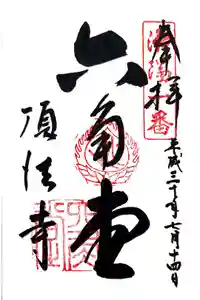 奉拝
平成三十年七月十四日
六角堂
頂法寺